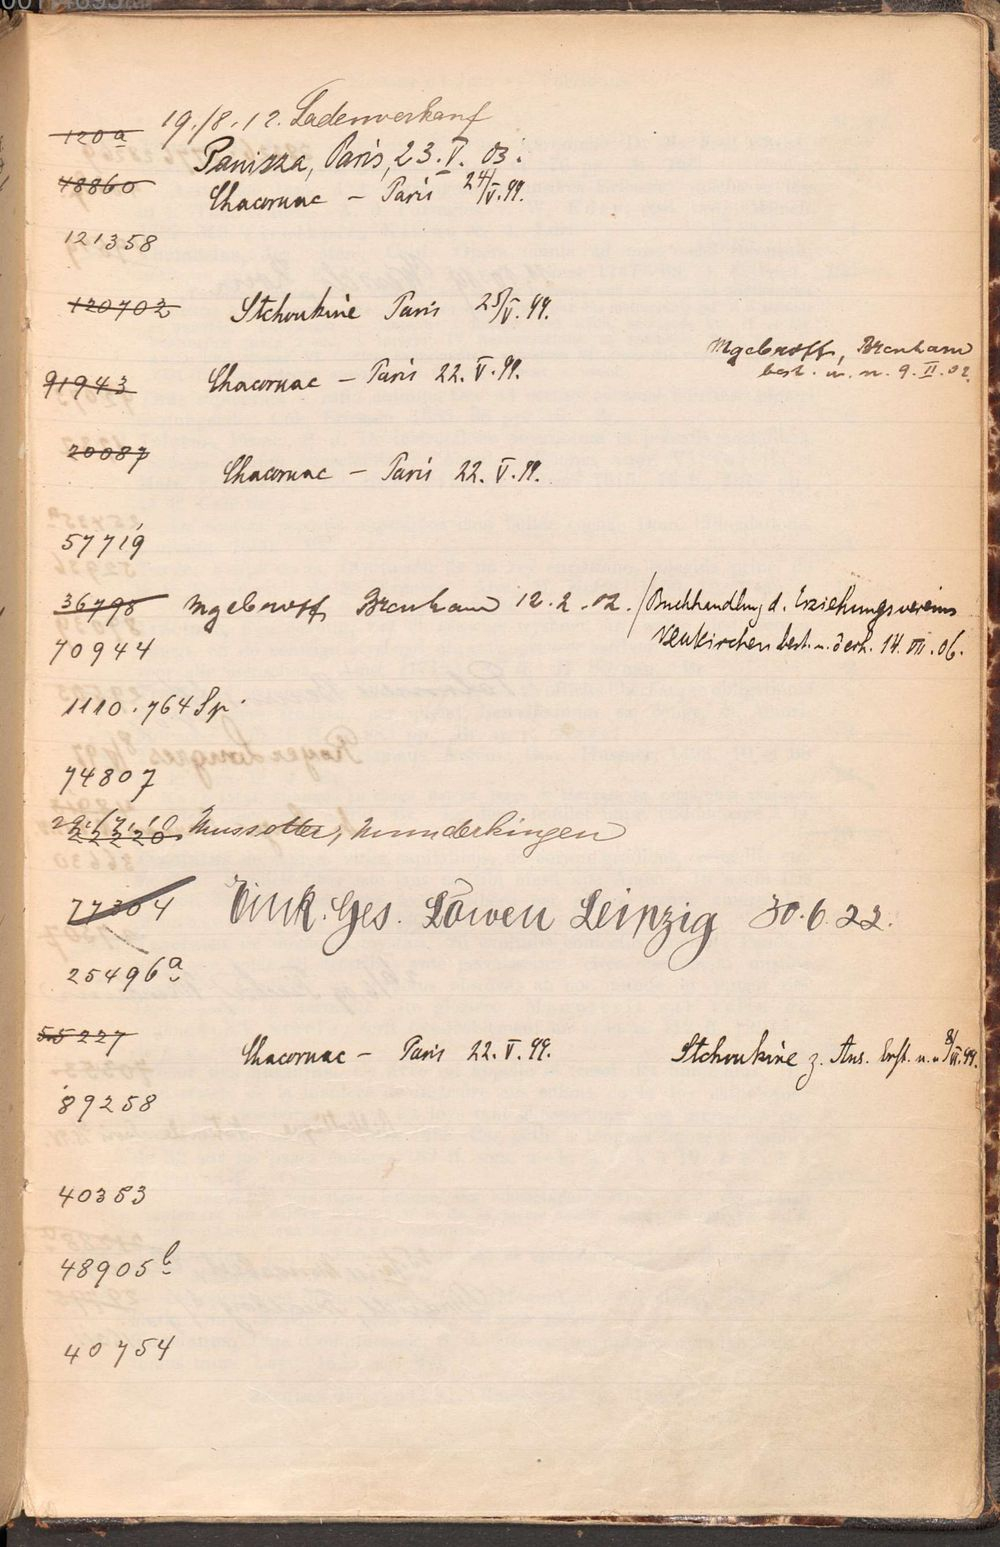 120a 19./8.12. Ladenverkauf
Panizza, Paris, 23.V. 03.
48860 Chacornac – Paris 24/V.99.
121358
120702 Stchoukine Paris 25/V.99.
Mgebroff, Brenham
best. u. n. 9.II.02.
91943 Chacornac – Paris 22.V.99.
20087
Chacornac – Paris 22.V.99.
57719
36798 Mgebroff Brenham 12.2.02. / Buchhandlung d. Erziehungsvereins
70944 Neukirchen best. u. d erh. 14.VII.06.
1110.764 Sp.
74807
29./7.10 Mussotter, Munderkingen
22220
77304 Eink. Ges. Löwen Leipzig 30.6.22.
25496a
55227 Chacornac – Paris 22.V.99. Stchoukine z. Ans.
89258
40353
48905b
40754